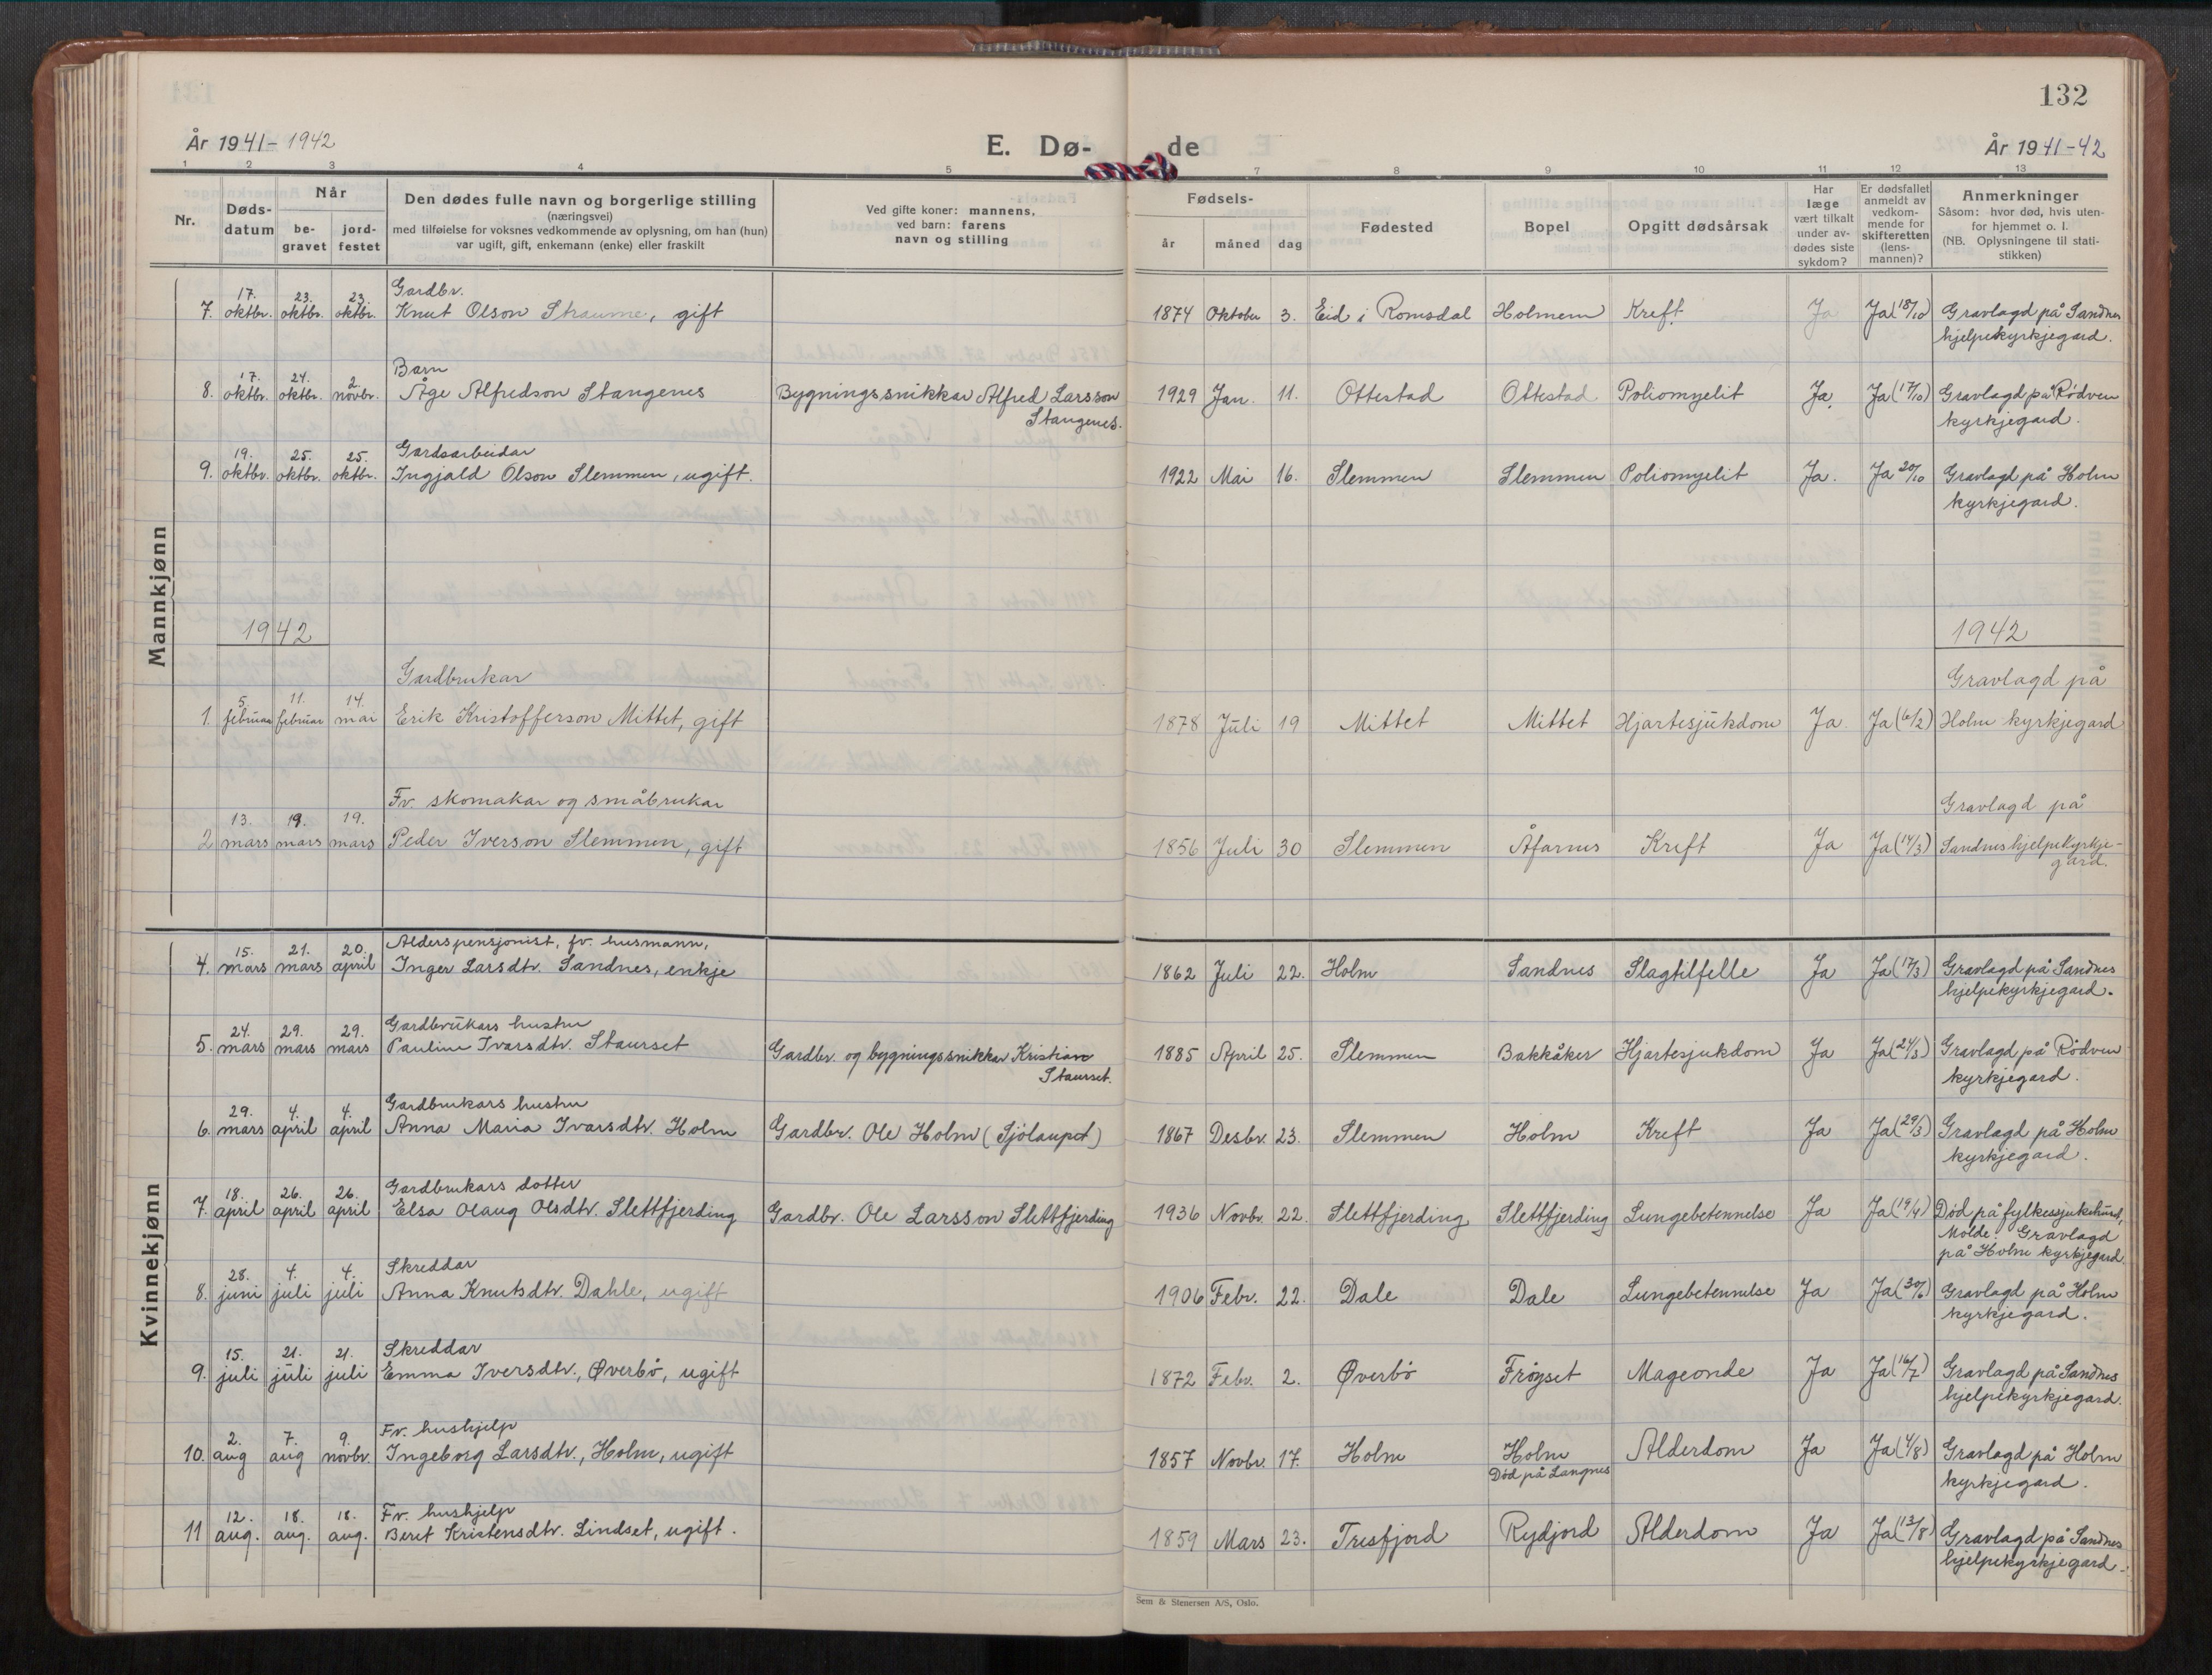 132
År 1941-1942
E. Dø-
de
År 1941-42
1 2 3 4 5 7 8 9 10 11 12 13
Nr.
Døds-
datum
Når
be-
gravet
jord-
festet
Den dødes fulle navn og borgerlige stilling
(næringsvei)
med tilføielse for voksnes vedkommende av oplysning, om han (hun)
var ugift, gift, enkemann (enke) eller fraskilt
Ved gifte koner: mannens,
ved barn: farens
navn og stilling
Fødsels-
år måned dag
Fødested
Bopel
Opgitt dødsårsak
Har
læge
vært tilkalt
under av-
dødes siste
sykdom?
Er dødsfallet
anmeldt av
vedkom-
mende for
skifteretten
(lens-
mannen)?
Anmerkninger
Såsom: hvor død, hvis uten-
for hjemmet o. l.
(NB. Oplysningene til stati-
stikken)
Mannkjønn
17. 23. 23. Gardbr.
7. oktbr. oktbr. oktbr. Knut Olson Straume, gift 1874 Oktober 3. Eid i Romsdal Holmem Kreft Ja Ja (18/10) Gravlagd på Sandnes
hjelpekyrkjegard.
17. 24. 2. Barn
8. oktbr. oktbr. novbr. Åge Alfredson Stangenes Bygningssnikkar Alfred Larsson 1929 Jan. 11. Ottestad Ottestad Poliomyelit Ja. Ja (17/10) Gravlagd på Rødven
Stangenes. kyrkjegard.
19. 25. 25. Gardsarbeidar
9. oktbr. oktbr. oktbr. Ingjald Olson Slemmen, ugift. 1922 Mai 16. Slemmen Slemmen Poliomyelit Ja. Ja 20/10 Gravlagd på Holm
kyrkjegard.
1942 1942
5. 11. 14. Gardbrukar Gravlagd på
1. februar februar mai Erik Kristofferson Mittet, gift 1878 Juli 19 Mittet Mittet Hjartesjukdom Ja Ja (6/2) Holm kyrkjegard
13. 19. 19. Fv. skomakar og småbrukar Gravlagd på
2 mars mars mars Peder Iverson Slemmen, gift 1856 Juli 30 Slemmen Åfarnes Kreft Ja Ja (14/3) Sandnes hjelpekyrkje-
gard.
Kvinnekjønn
15. 21. 20. Alderspensjonist, fv. husmann,
4. mars mars april Inger Larsdtr. Sandnes, enkje 1862 Juli 22. Holm Sandnes Slagtilfelle Ja Ja (17/3) Gravlagd på Sandnes
hjelpekyrkjegard.
24. 29. 29. Gardbrukars hustru
5. mars mars mars Pauline Ivarsdtr. Staurset Gardbr. og bygningssnikkar Kristian 1885 April 25. Slemmen Bakkåker Hjartesjukdom Ja Ja (24/3) Gravlagd på Rödven
Staurset. kyrkjegard.
29. 4. 4. Gardbrukars hustru
6. mars april april Anna Maria Ivarsdtr. Holm Gardbr. Ole Holm (Sjølaupet) 1867 Desbr. 23. Slemmen Holm Kreft Ja Ja (29/3) Gravlagd på Holm
kyrkjegard.
18. 26. 26. Gardbrukars dotter
7. april april april Elsa Olaug Olsdtr. Slettfjerding Gardbr. Ole Larsson Slettfjerding 1936 Novbr. 22. Slettfjerding Slettfjerding Lungebetennelse Ja Ja (19/4) Død på fylkessjukehuset,
Molde. Gravlagd
på Holm kyrkjegard
28. 4. 4. Skreddar
8. juni juli juli Anna Knutsdtr. Dahle, ugift 1906 Febr. 22. Dale Dale Lungebetennelse Ja Ja (30/6) Gravlagd på Holm
kyrkjegard.
15. 21. 21. Skreddar
9. juli juli juli Emma Iversdtr., Øverbö, ugift 1872 Febr. 2. Øverbö Fröyset Mageonde Ja Ja (16/7) Gravlagd på Sandnes
hjelpekyrkjegard.
2. 7. 9. Fv. hushjelp
10. aug aug novbr. Ingeborg Larsdtr., Holm, ugift 1857 Novbr. 17. Holm Holm Alderdom Ja Ja (4/8) Gravlagd på Holm
Død på Langnes kyrkjegard.
12. 18. 18. Fv. hushjelp
11 aug. aug. aug. Beret Kristensdtr. Lindset, ugift. 1859 Mars 23. Tresfjord Rydjord Alderdom Ja Ja (13/8) Gravlagd på Sandnes
hjelpekyrkjegard.
Sem & Stenersen A/S, Oslo.